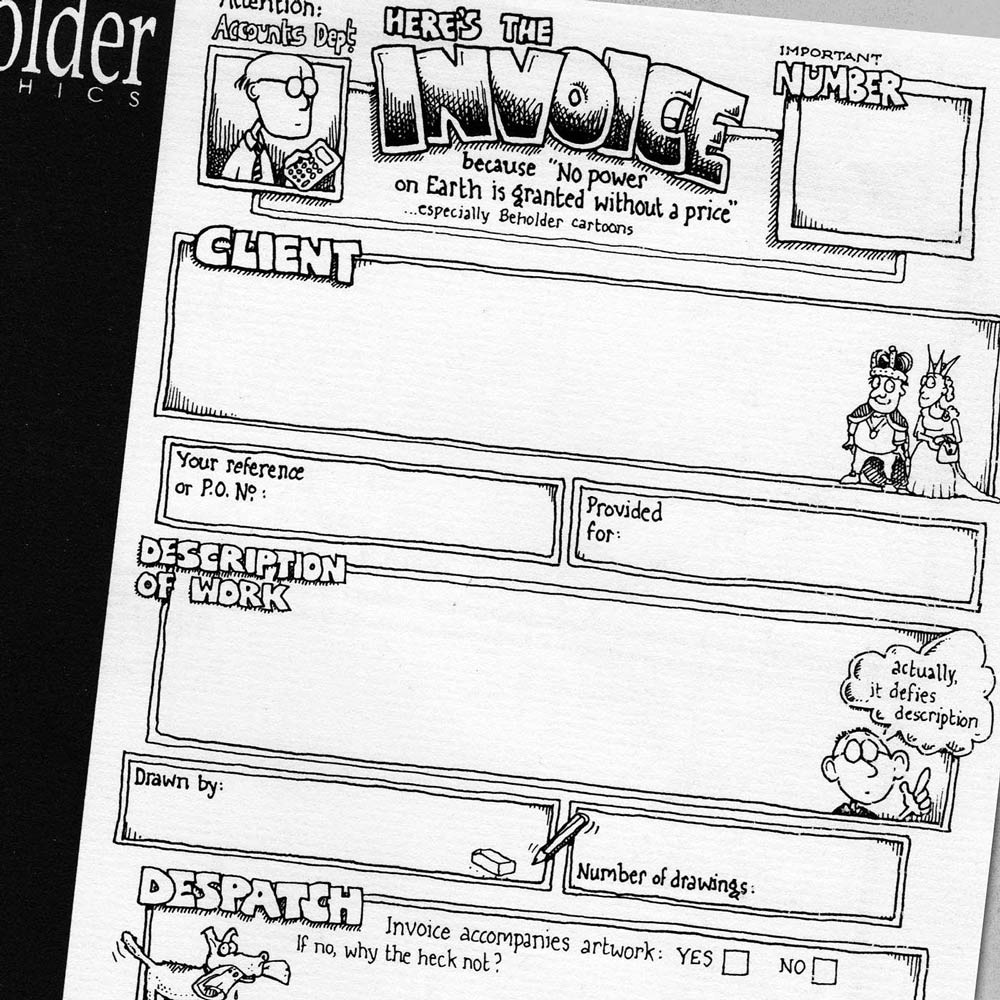 older
HICS
Attention:
Accounts Dept
HERE'S THE
INVOICE
because "No power
on Earth is granted without a price"
...especially Beholder cartoons
IMPORTANT
NUMBER
CLIENT
Your reference
or P.O. No:
Provided
for:
DESCRIPTION
OF WORK
actually,
...it defies
description
Drawn by:
Number of drawings:
DESPATCH
Invoice accompanies artwork: YES NO
If no, why the heck not?